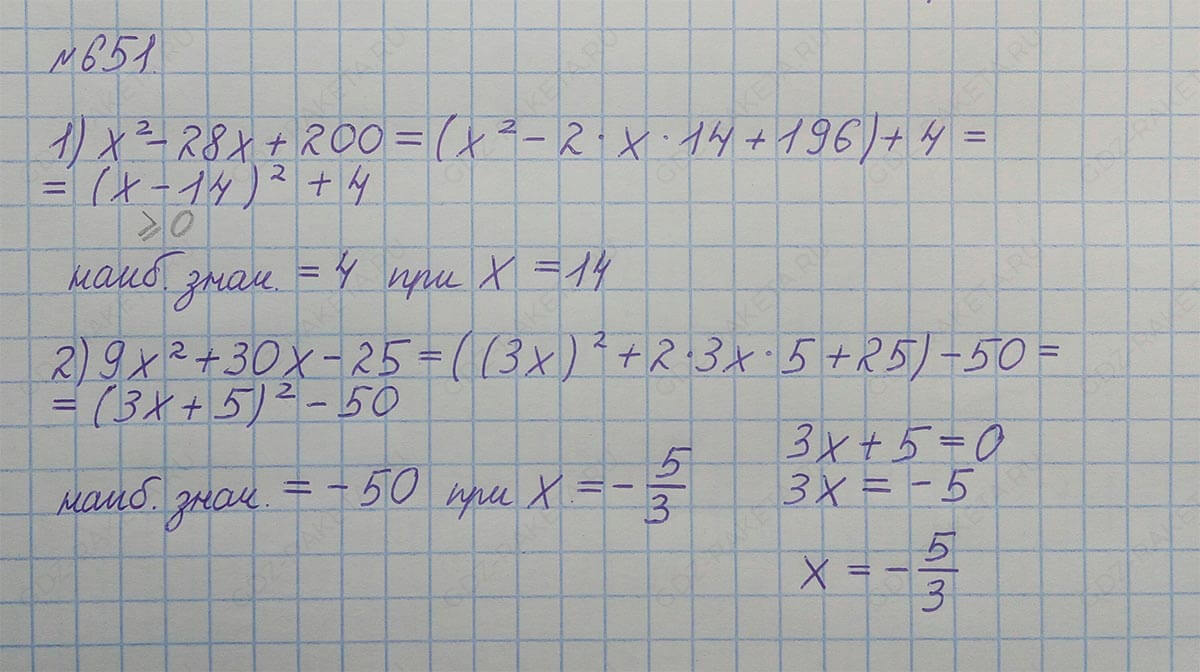 №651.
1) x² - 28x + 200 = (x² - 2·x·14 + 196) + 4 =
= (x - 14)² + 4
⩾0
наиб. знач. = 4 при x = 14
2) 9x² + 30x - 25 = ((3x)² + 2·3x·5 + 25) - 50 =
= (3x + 5)² - 50
3x + 5 = 0
3x = -5
наиб. знач. = -50 при x = -5/3
x = -5/3
GDZ-RAKETA.RU